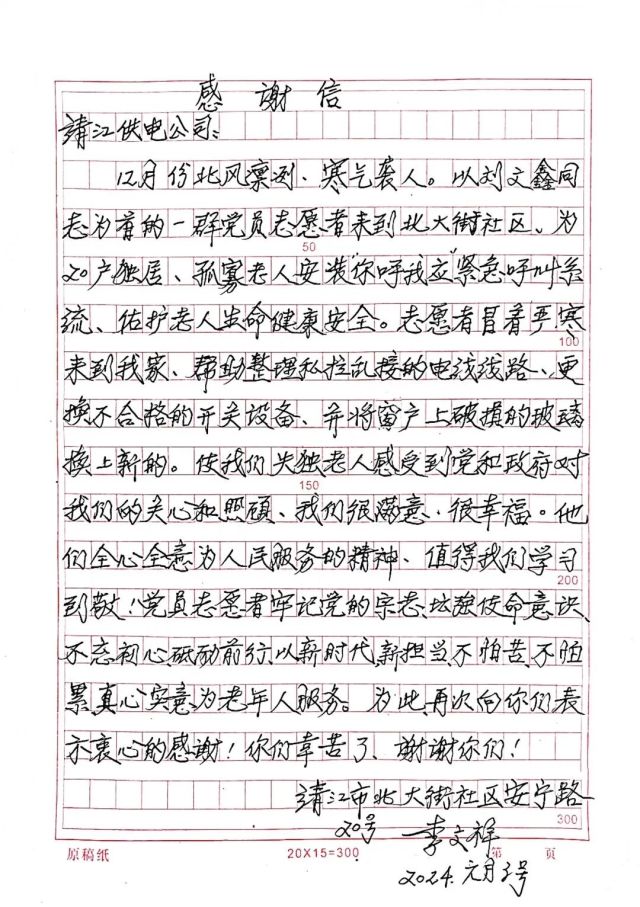 感谢信
靖江供电公司:
12月份北风凛冽、寒气袭人。以刘文鑫同
志为首的一群党员志愿者来到北大街社区、为
50
20户独居、孤寡老人安装"你呼我应"紧急呼叫系
统、佑护老人生命健康安全。志愿者冒着严寒
100
来到我家、帮助整理私拉乱接的电线线路、更
换不合格的开关设备、并将窗户上破损的玻璃
换上新的。使我们失独老人感受到党和政府对
150
我们的关心和照顾、我们很满意、很幸福。他
们全心全意为人民服务的精神、值得我们学习
200
致敬!党员志愿者牢记党的宗志、坛强使命意识、
不忘初心砥砺前行、以新时代、新担当、不怕苦、不怕
累、真心实意为老年人服务。为此、再次向你们表
示衷心的感谢!你们辛苦了、谢谢你们!
靖江市北大街社区安宁路
300
20号 李文祥
原稿纸 20X15=300 第 页
2024.元月3号